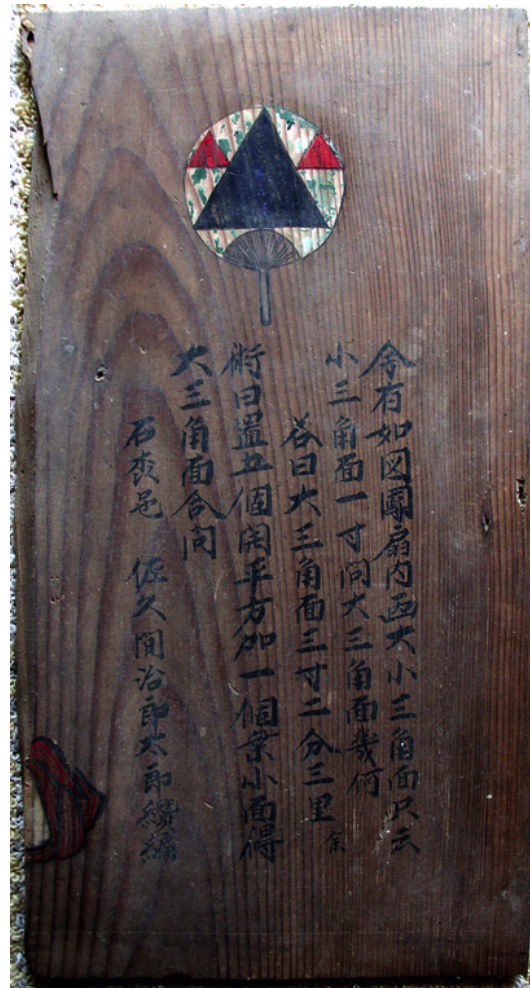 今有如図團扇内画大小三角面只云
小三角面一寸問大三角面幾何
荅曰大三角面三寸二分三里余
術曰置五個開平方加一個乗小面得
大三角面合問
石森邑 佐久間治郎太郎纉編